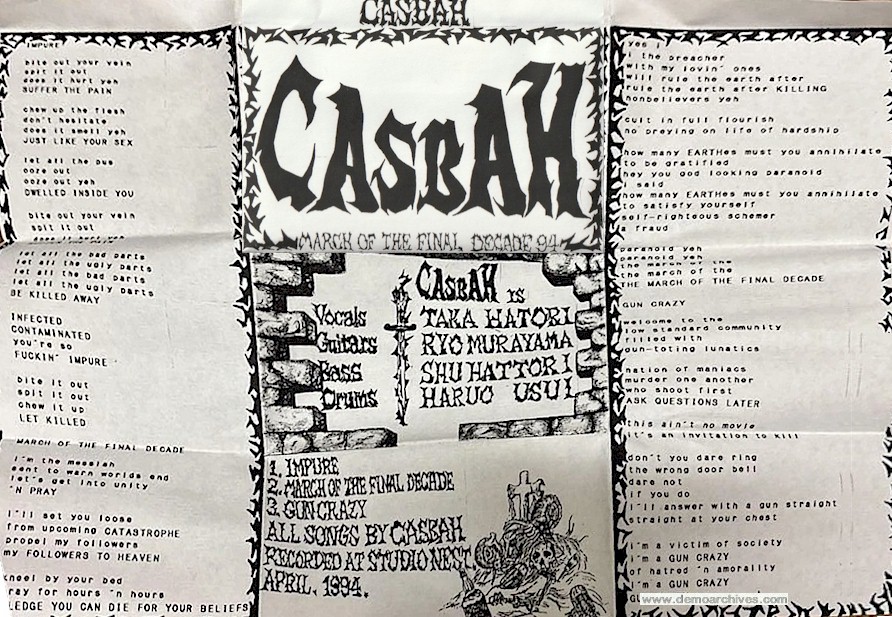 CASBAH
IMPURE
bite out your vein
spit it out
does it hurt yeh
SUFFER THE PAIN
chew up the flesh
don't hesitate
does it smell yeh
JUST LIKE YOUR SEX
let all the pus
ooze out
ooze out yeh
DWELLED INSIDE YOU
bite out your vein
spit it out
let all the bad parts
let all the ugly parts
let all the bad parts
let all the ugly parts
BE KILLED AWAY
INFECTED
CONTAMINATED
you're so
FUCKIN' IMPURE
bite it out
spit it out
chew it up
LET KILLED
MARCH OF THE FINAL DECADE
i'm the messiah
sent to warn worlds end
let's get into unity
'N PRAY
i'll set you loose
from upcoming CATASTROPHE
propel my followers
my FOLLOWERS TO HEAVEN
kneel by your bed
ray for hours 'n hours
LEDGE YOU CAN DIE FOR YOUR BELIEFS
CASBAH
MARCH OF THE FINAL DECADE 94
CASBAH IS
Vocals TAKA HATORI
Guitars RYO MURAYAMA
Bass SHU HATTORI
Drums HARUO USUI
1. IMPURE
2. MARCH OF THE FINAL DECADE
3. GUN CRAZY
ALL SONGS BY CASBAH
RECORDED AT STUDIO NEST,
APRIL, 1994.
yes i
i the preacher
with my lovin' ones
will rule the earth after
rule the earth after KILLING
nonbelievers yeh
cult in full flourish
no preying on life of hardship
how many EARTHes must you annihilate
to be gratified
hey you god looking paranoid
i said
how many EARTHes must you annihilate
to satisfy yourself
self-righteous schemer
a fraud
paranoid yeh
paranoid yeh
the march of the
the march of the
THE MARCH OF THE FINAL DECADE
GUN CRAZY
welcome to the
low standard community
filled with
gun-toting lunatics
nation of maniacs
murder one another
who shoot first
ASK QUESTIONS LATER
this ain't no movie
it's an invitation to kill
don't you dare ring
the wrong door bell
dare not
if you do
i'll answer with a gun straight
straight at your chest
i'm a victim of society
i'm a GUN CRAZY
of hatred 'n amorality
i'm a GUN CRAZY
www.demoarchives.com